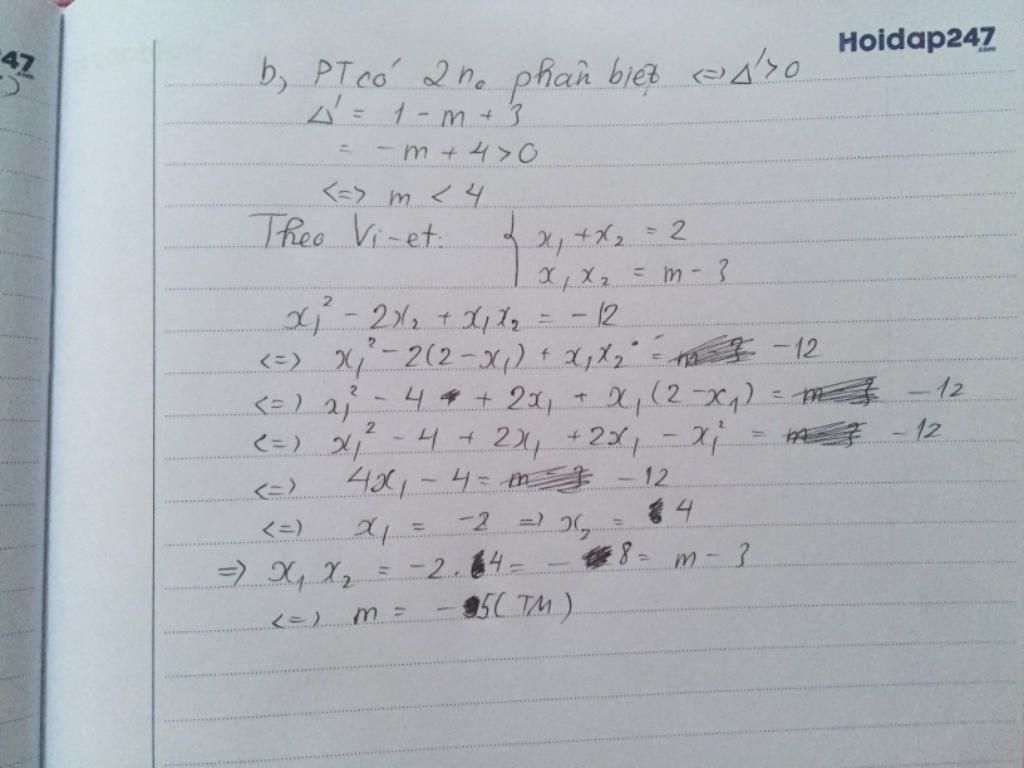 Hoidap247
.com
47
.com
b, PT có 2 n₀ phân biệt <=> Δ' > 0
Δ' = 1 - m + 3
= -m + 4 > 0
<=> m < 4
Theo Vi-et: { x₁ + x₂ = 2
x₁x₂ = m - 3
x₁² - 2x₂ + x₁x₂ = -12
<=> x₁² - 2(2 - x₁) + x₁x₂ = -12
<=> x₁² - 4 + 2x₁ + x₁(2 - x₁) = -12
<=> x₁² - 4 + 2x₁ + 2x₁ - x₁² = -12
<=> 4x₁ - 4 = -12
<=> x₁ = -2 => x₂ = 4
=> x₁ x₂ = -2.4 = -8 = m - 3
<=> m = -5 (TM)